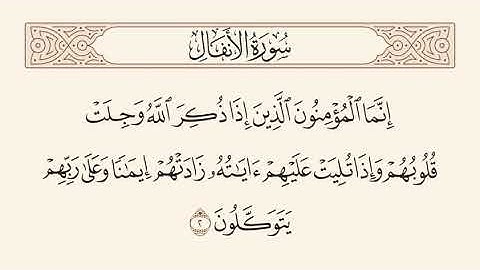 سُورَةُ الأَنفَالِ
إِنَّمَا ٱلْمُؤْمِنُونَ ٱلَّذِينَ إِذَا ذُكِرَ ٱللَّهُ وَجِلَتْ
قُلُوبُهُمْ وَإِذَا تُلِيَتْ عَلَيْهِمْ ءَايَـٰتُهُۥ زَادَتْهُمْ إِيمَـٰنًا وَعَلَىٰ رَبِّهِمْ
يَتَوَكَّلُونَ ٢